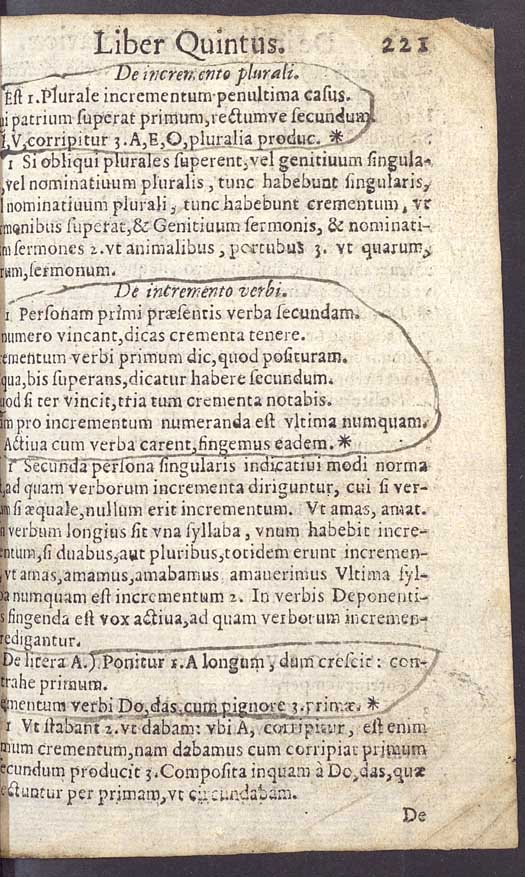 Liber Quintus. 221
De incremento plurali.
Est 1. Plurale incrementum penultima casus.
ui patrium superat primum, rectumve secundum.
I, V, corripitur 3. A, E, O, pluralia produc. *
1 Si obliqui plurales superent, vel genitiuum singula-
, vel nominatiuum pluralis, tunc habebunt singularis,
l nominatiuum plurali, tunc habebunt crementum, vt
rmonibus superat, & Genitiuum sermonis, & nominati-
m sermones 2. vt animalibus, portubus 3. vt quarum,
rum, sermonum.
De incremento verbi.
1. Personam primi præsentis verba secundam.
numero vincant, dicas crementa tenere.
ementum verbi primum dic, quod posituram.
qua, bis superans, dicatur habere secundum.
uod si ter vincit, tria tum crementa notabis.
am pro incrementum numeranda est vltima numquam.
Actiua cum verba carent, fingemus eadem. *
1 Secunda persona singularis indicatiui modi norma
, ad quam verborum incrementa diriguntur, cui si ver-
um si æquale, nullum erit incrementum. Vt amas, amat.
n verbum longius sit vna syllaba, vnum habebit incre-
entum, si duabus, aut pluribus, totidem erunt incremen-
, vt amas, amamus, amabamus amauerimus Vltima syl-
ba numquam est incrementum 2. In verbis Deponenti-
s fingenda est vox actiua, ad quam verborum incremen-
redigantur.
De litera A.) Ponitur 1. A longum, dum crescit: con-
trahe primum.
ementum verbi Do, das, cum pignore 3. primæ. *
1 Vt stabant 2. vt dabam: vbi A, corripitur, est enim
mum crementum, nam dabamus cum corripiat primum
secundum producit 3. Composita inquam à Do, das, quæ
ectuntur per primam, vt circundabam.
De